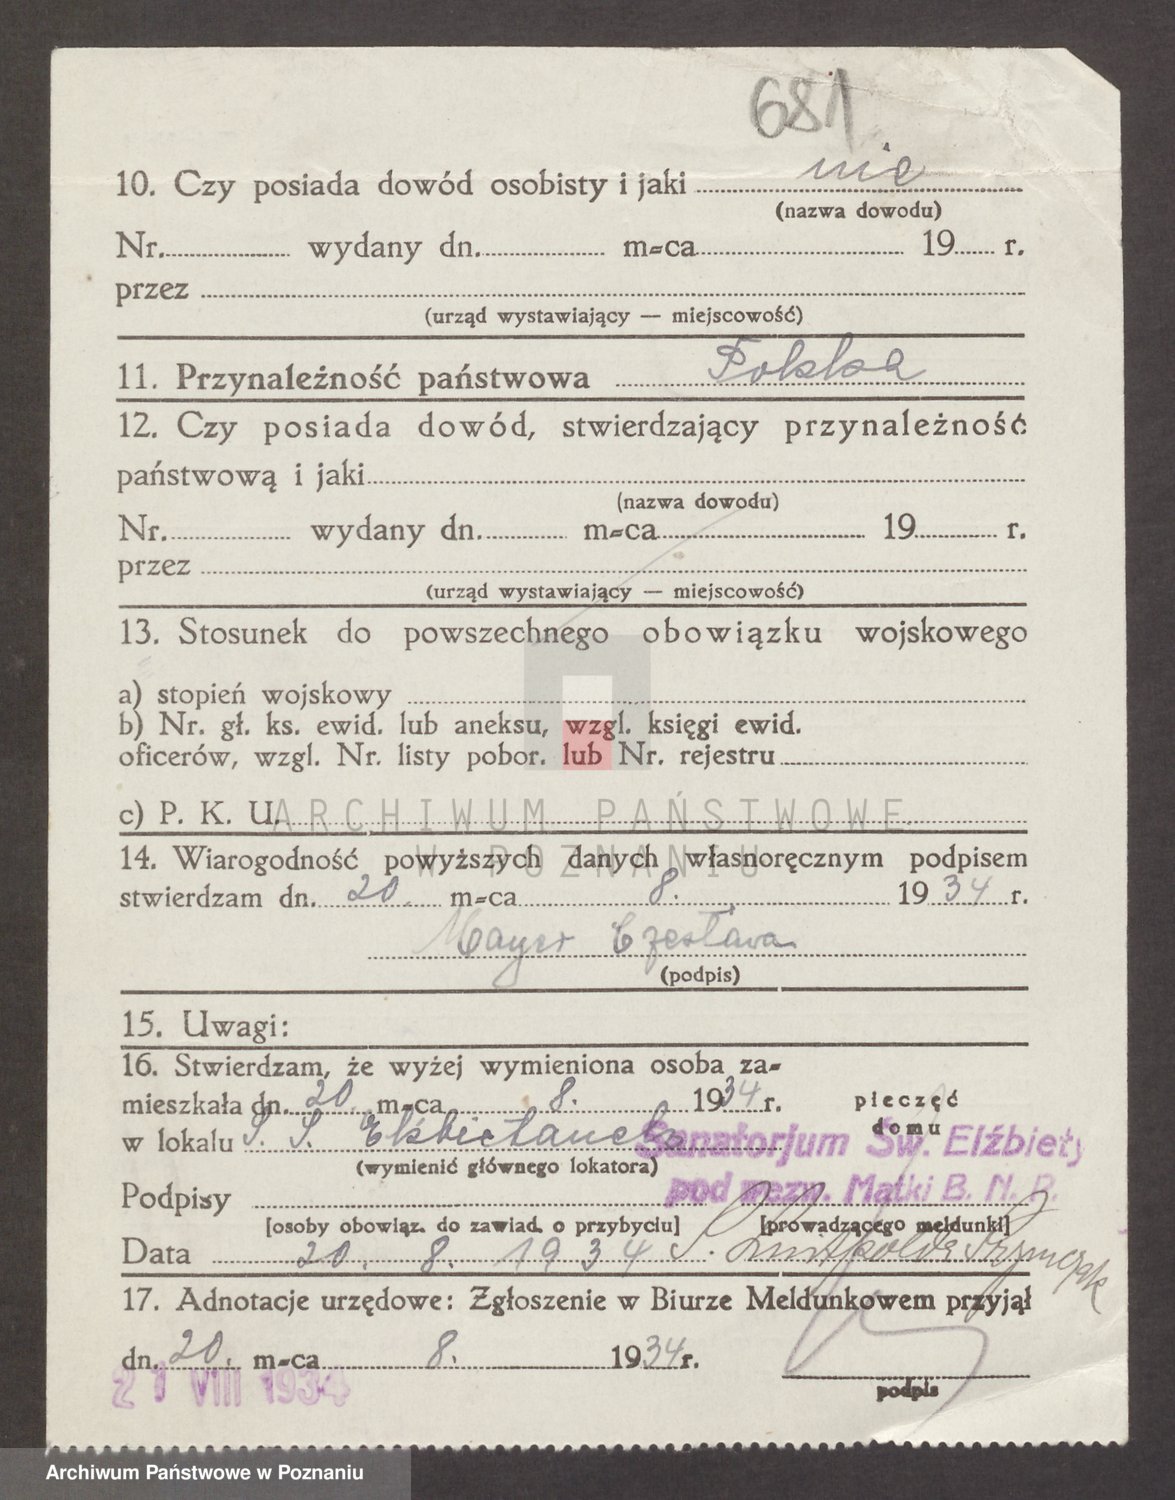 681
10. Czy posiada dowód osobisty i jaki nie
(nazwa dowodu)
Nr. wydany dn. m-ca 19 r.
przez
(urząd wystawiający — miejscowość)
11. Przynależność państwowa Polska
12. Czy posiada dowód, stwierdzający przynależność
państwową i jaki
(nazwa dowodu)
Nr. wydany dn. m-ca 19 r.
przez
(urząd wystawiający — miejscowość)
13. Stosunek do powszechnego obowiązku wojskowego
a) stopień wojskowy
b) Nr. gł. ks. ewid. lub aneksu, wzgl. księgi ewid.
oficerów, wzgl. Nr. listy pobor. lub Nr. rejestru
c) P. K. U.
ARCHIWUM PAŃSTWOWE
W POZNANIU
14. Wiarogodność powyższych danych własnoręcznym podpisem
stwierdzam dn. 20. m-ca 8. 1934 r.
Mayer Czesława
(podpis)
15. Uwagi:
16. Stwierdzam, że wyżej wymieniona osoba za-
mieszkała dn. 20. m-ca 8. 1934 r.
pieczęć
domu
w lokalu S. S. Elżbietanek
Sanatorjum Św. Elżbiety
(wymienić głównego lokatora)
pod wezw. Matki B. N. P.
Podpisy
[osoby obowiąz. do zawiad. o przybyciu] [prowadzącego meldunki]
Data 20. 8. 1934 S.
17. Adnotacje urzędowe: Zgłoszenie w Biurze Meldunkowem przyjął
dn. 20. m-ca 8. 1934 r.
21 VIII 1934
podpis
Archiwum Państwowe w Poznaniu